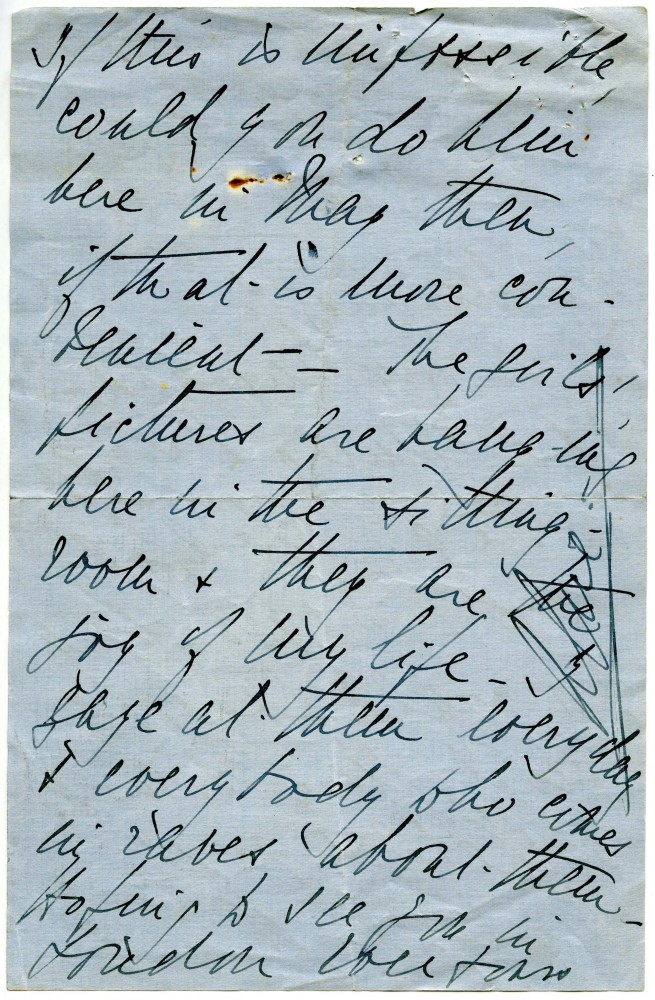 If this is impossible,
could you do him
here in May then,
if that is more con-
venient — The girls'
pictures are hanging
here in the sitting
room & they are the
joy of my life — I
gaze at them everyday
& everybody who comes
in raves about them —
Hoping to see you in
London